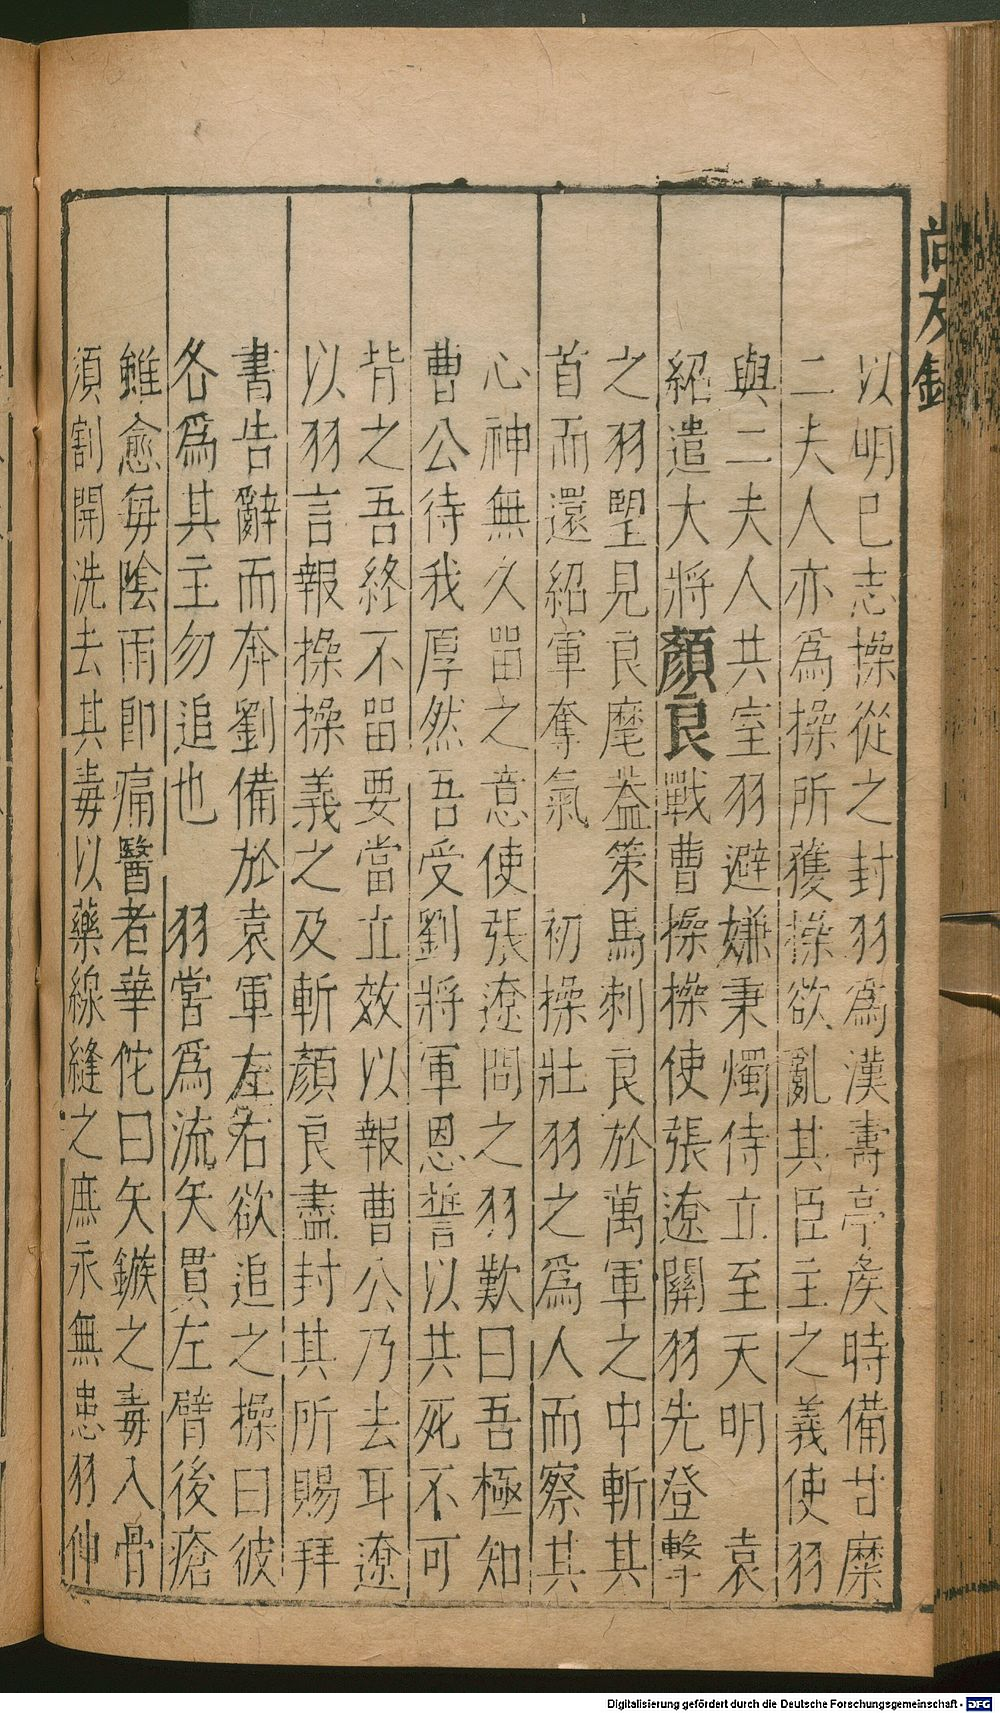 尚友錄
以明己志操從之封羽為漢壽亭矦時備甘糜
二夫人亦為操所獲操欲亂其臣主之義使羽
與二夫人共室羽避嫌秉燭侍立至天明　袁
紹遣大將顏良戰曹操操使張遼關羽先登擊
之羽朢見良麾葢策馬刺良於萬軍之中斬其
首而還紹軍奪氣　初操壯羽之為人而察其
心神無久畱之意使張遼問之羽歎曰吾極知
曹公待我厚然吾受劉將軍恩誓以共死不可
背之吾終不畱要當立效以報曹公乃去耳遼
以羽言報操操義之及斬顏良盡封其所賜拜
書告辭而奔劉備於袁軍左右欲追之操曰彼
各為其主勿追也　羽嘗為流矢貫左臂後瘡
雖愈每陰雨即痛醫者華佗曰矢鏃之毒入骨
須割開洗去其毒以藥線縫之庶永無患羽伸
Digitalisierung gefördert durch die Deutsche Forschungsgemeinschaft - DFG